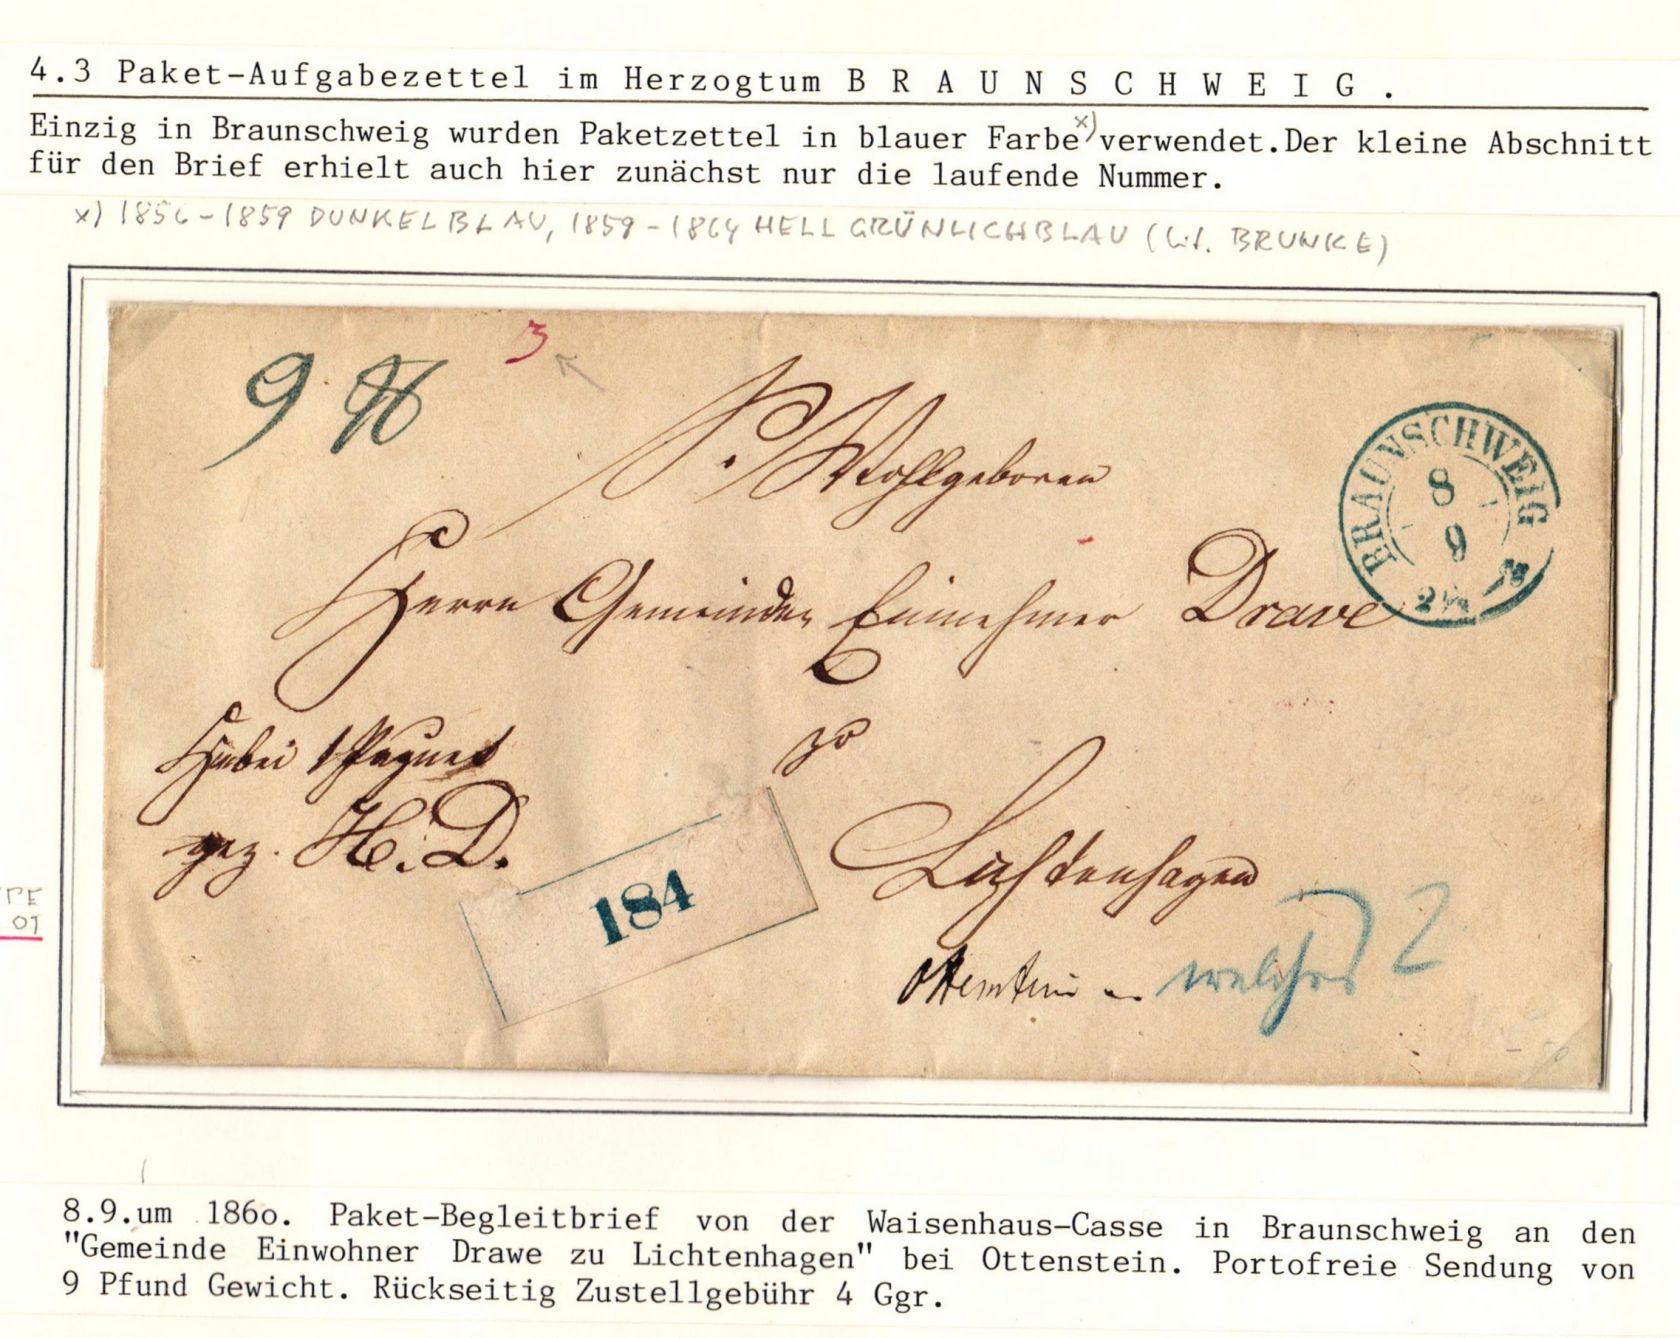 4.3 Paket-Aufgabezettel im Herzogtum B R A U N S C H W E I G .
Einzig in Braunschweig wurden Paketzettel in blauer Farbe x) verwendet.Der kleine Abschnitt
für den Brief erhielt auch hier zunächst nur die laufende Nummer.
x) 1856-1859 DUNKELBLAU, 1859-1864 HELLGRÜNLICHBLAU (Lt. BRUNKE)
3
9 ℔
Wohlgeboren
BRAUNSCHWEIG
8
9
2½
Herrn Gemeinde Einnehmer Drave
Hiebei 1 Paquet
zu
gez. H. D.
Lichtenhagen
184
01
Ottenstein
welches ?
8.9.um 186o. Paket-Begleitbrief von der Waisenhaus-Casse in Braunschweig an den
"Gemeinde Einwohner Drawe zu Lichtenhagen" bei Ottenstein. Portofreie Sendung von
9 Pfund Gewicht. Rückseitig Zustellgebühr 4 Ggr.